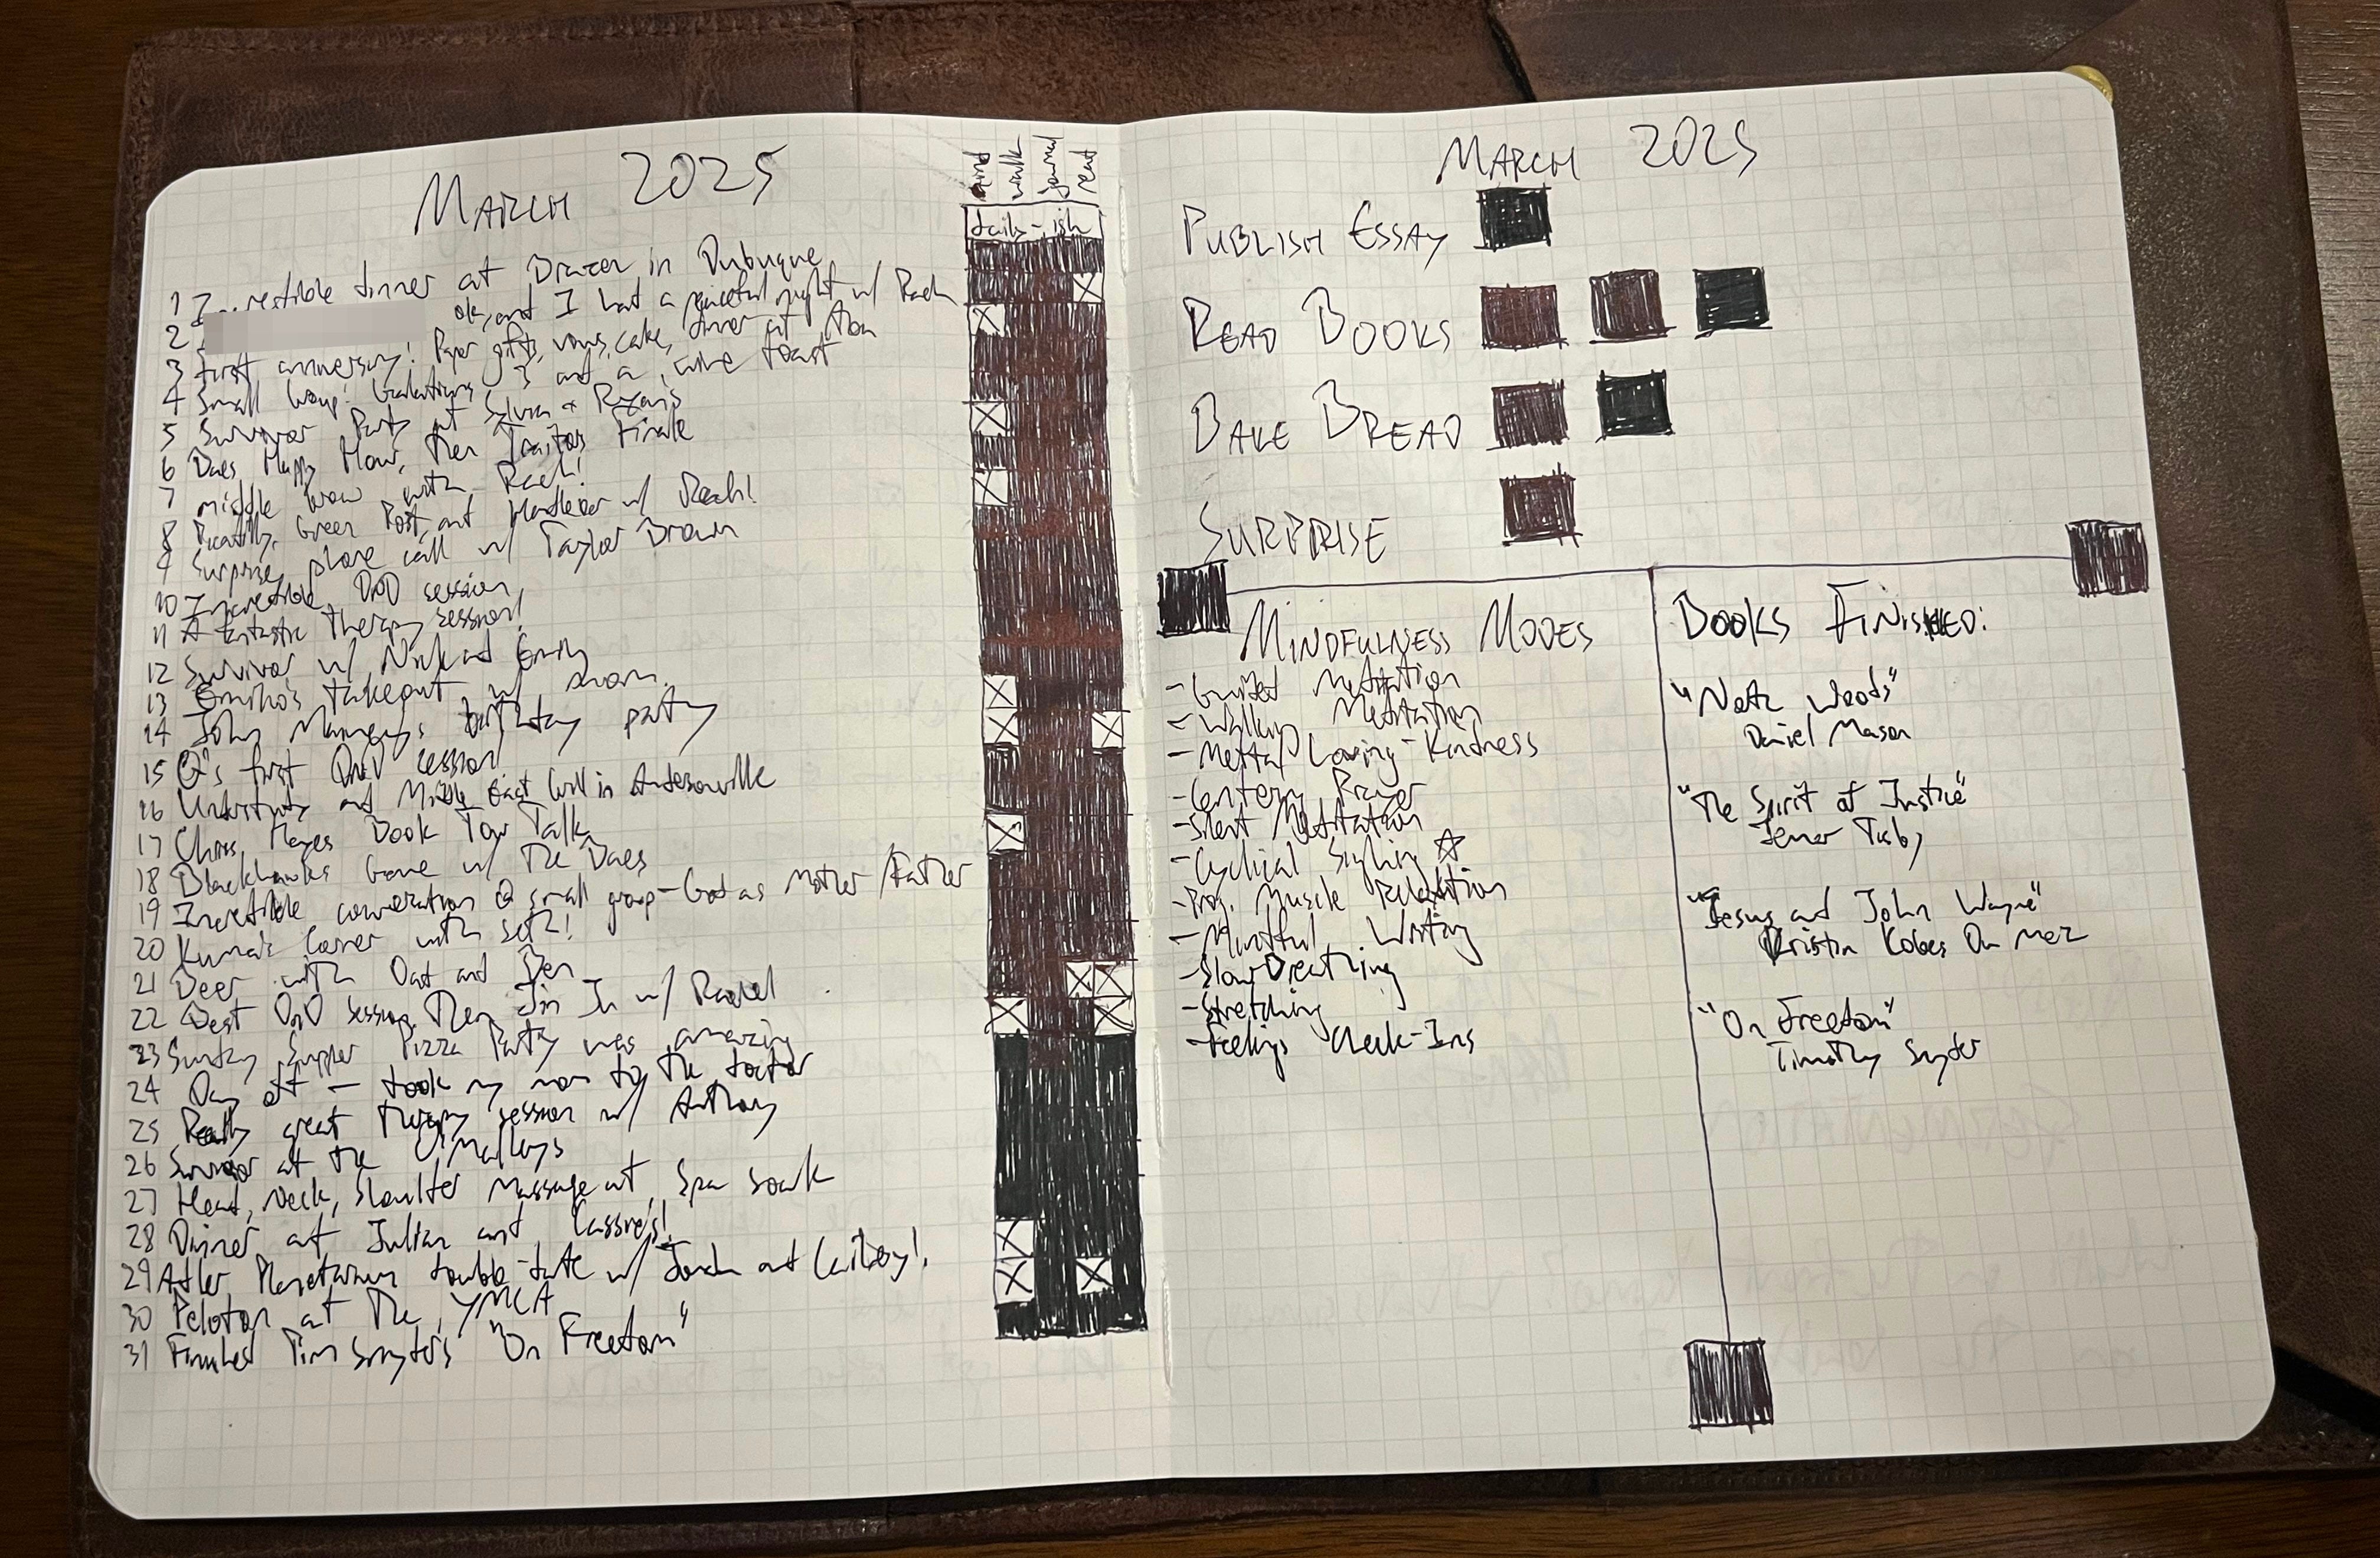 MARCH 2025
mind
walk
journal
read
daily-ish
1 Incredible dinner at Brazen in Dubuque
2 ok, and I had a peaceful night w/ Rach
3 First anniversary! Paper gifts, vows, cake, dinner at
4 Small Group! Galatians 3 and a wine toast
5 Survivor Party at Sylvia + Ryan's
6 Daes Happy Hour, then Traitors Finale
7 middle brow with Rach!
8 Picadilly, Green Post, and Handlebar w/ Rach!
9 Surprise phone call w/ Taylor Brown
10 Incredible DnD session
11 A fantastic therapy session!
12 Survivor w/ Nick and Emily
13 takeout w/ mom
14 John birthday party
15 Q's first DnD session!
16 and Middle East Grill in Andersonville
17 Chris Hayes Book Tour Talk
18 Blackhawks Game w/ the Daes
19 Incredible conversation @ small group - God as Mother/Father
20 Kuma's Corner with Seth!
21 Beer with Dad and Ben
22 Best DnD session, then Jin Ju w/ Rachel
23 Sunday Supper Pizza Party was amazing
24 Day off - took my mom to the doctor
25 Really great therapy session w/ Anthony
26 Survivor at the O'Malleys
27 Head, Neck, Shoulder Massage and Spa soak
28 Dinner at Julian and Cassie's!
29 Adler Planetarium double-date w/ and
30 Peloton at the YMCA
31 Finished Tim Snyder's "On Freedom"
MARCH 2025
PUBLISH ESSAY
READ BOOKS
BAKE BREAD
SURPRISE
MINDFULNESS MODES
- Guided Meditation
- Walking Meditation
- Metta/Loving-Kindness
- Centering Prayer
- Silent Meditation
- Cyclical Sighing ☆
- Prog. Muscle Relaxation
- Mindful Writing
- Slow Breathing
- Stretching
- Feelings Check-Ins
BOOKS FINISHED:
"North Woods"
Daniel Mason
"The Spirit of Justice"
Jemar Tisby
"Jesus and John Wayne"
Kristin Kobes Du Mez
"On Freedom"
Timothy Snyder